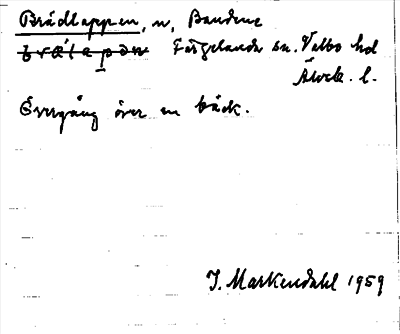 Brädlappen, n, Bandene
Färgelanda sn. Valbo hd
Älvsb. l.
Övergång över en bäck.
J. Markendahl 1959